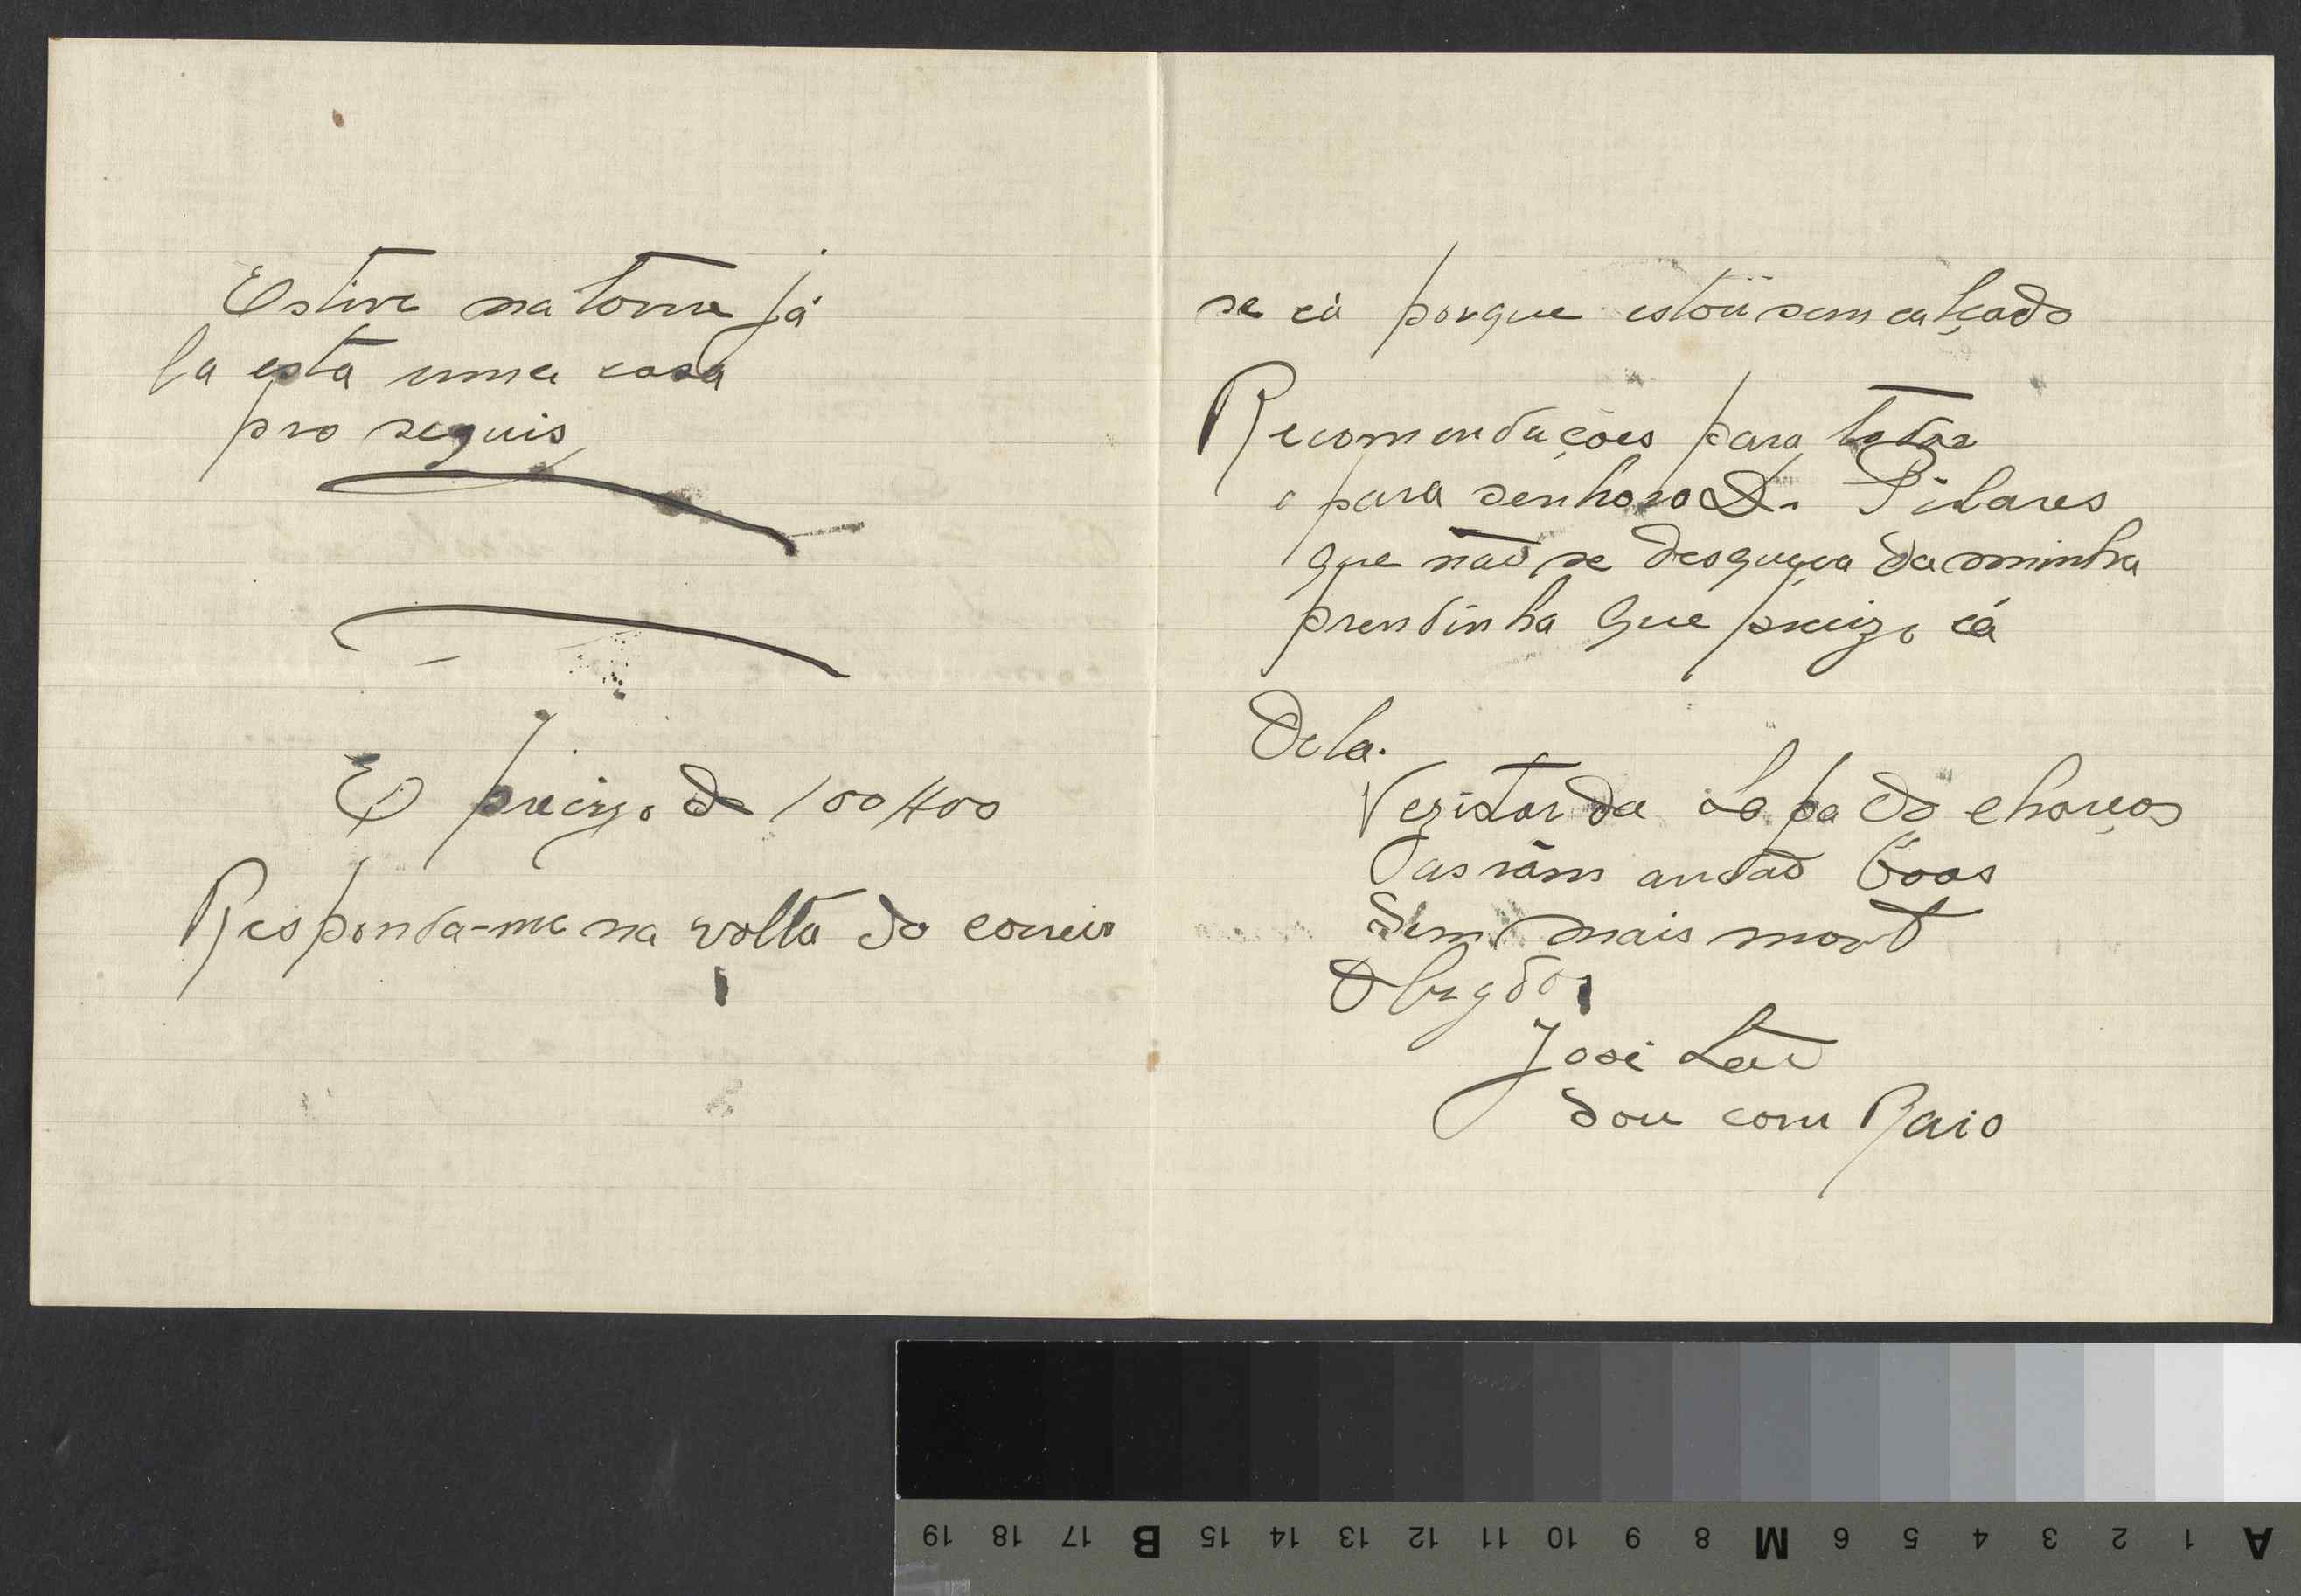 Estive na torre já
la esta uma casa
pro seguis
E preizo de 100#00
Responda-me na volta do correio
se cà porque estou sem calçado
Recomendações para todos
e para senhor o D. Pilares
que não se desqueça da minha
prendinha que preizo cá
De la.
Vezitar da Lo pa do
andao boas
Sem mais
Obrgdo
José
Sou com Raio
A 1 2 3 4 5 6 M 8 9 10 11 12 13 14 15 B 17 18 19